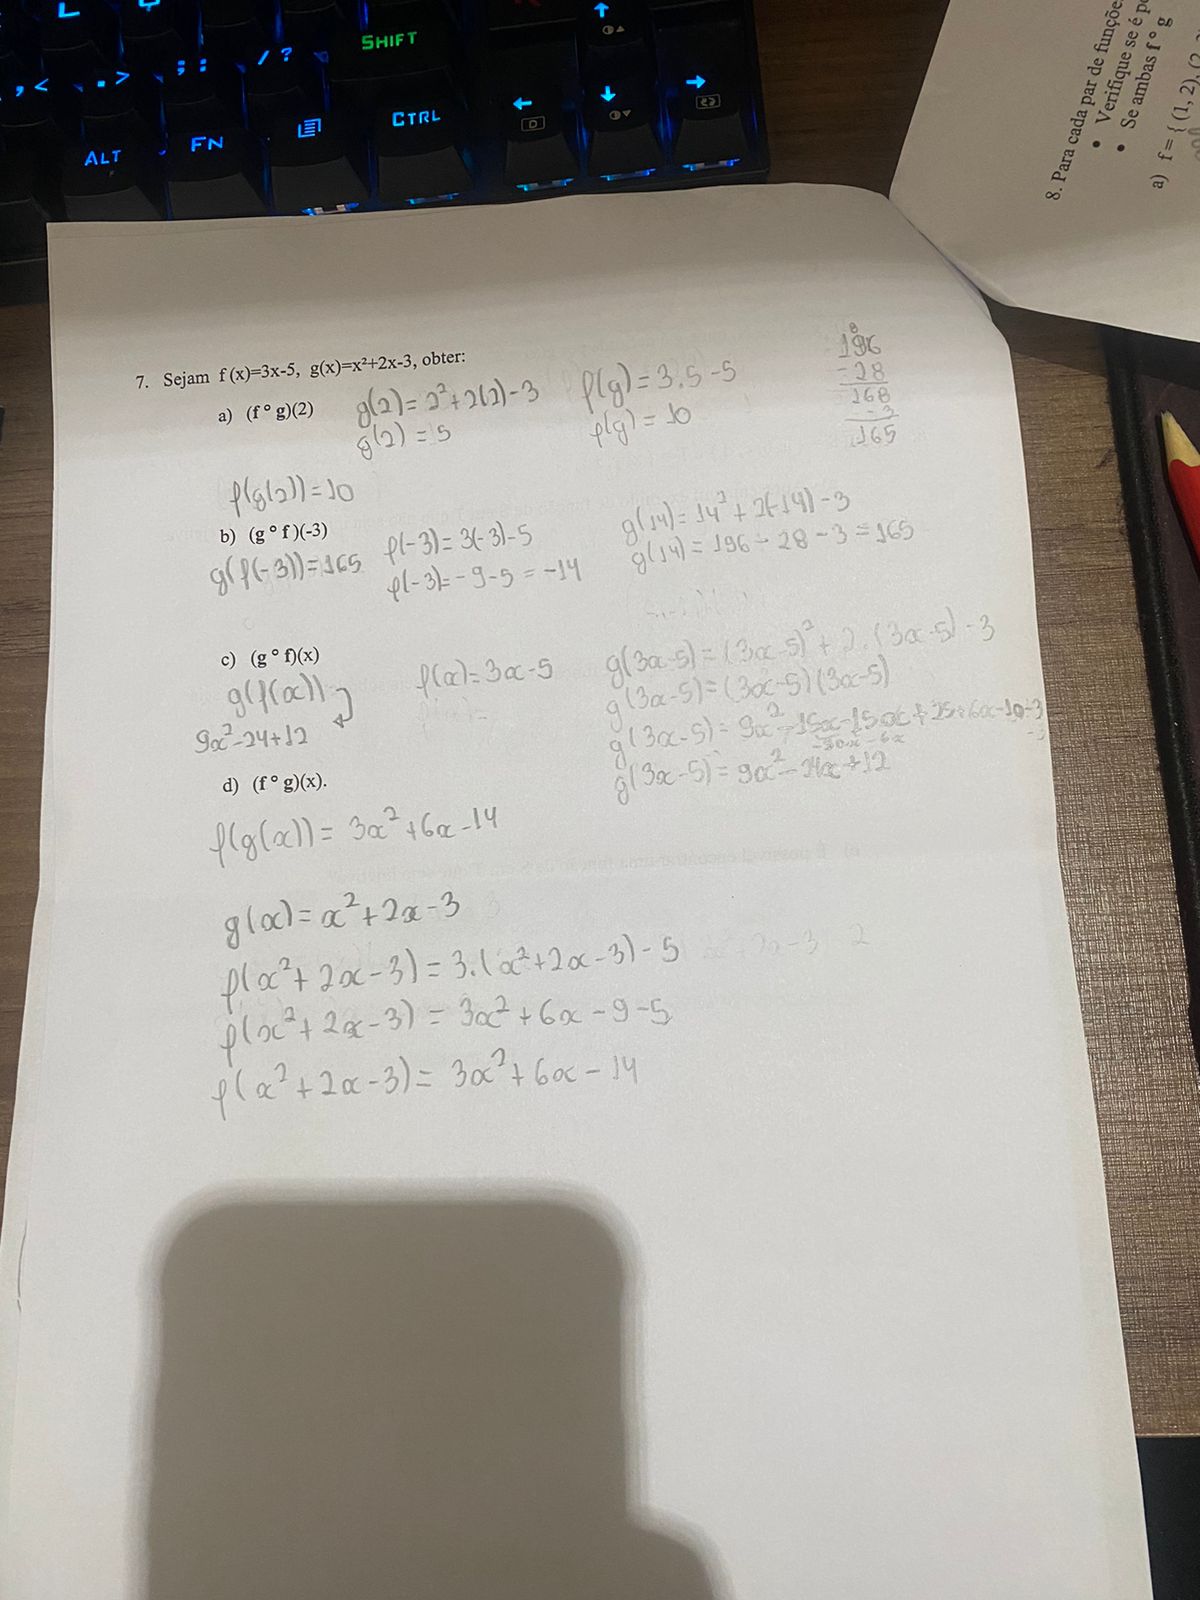 SHIFT
, <
. >
; :
/ ?
ALT
FN
CTRL
D
8. Para cada par de funçõe
• Verifique se é p
• Se ambas f ° g
a) f = { (1, 2), (2
7. Sejam f (x)=3x-5, g(x)=x²+2x-3, obter:
a) (f ° g)(2)
g(2) = 2² + 2(2) - 3
g(2) = 5
f(g) = 3.5 - 5
f(g) = 10
8
196
- 28
168
- 3
165
f(g(2)) = 10
b) (g ° f )(-3)
g(f(-3)) = 165
f(-3) = 3(-3) - 5
f(-3) = - 9 - 5 = - 14
g(14) = 14² + 2(-14) - 3
g(14) = 196 - 28 - 3 = 165
c) (g ° f)(x)
g(f(x))
9x² - 24 + 12
f(x) = 3x - 5
g(3x - 5) = (3x - 5)² + 2 . (3x - 5) - 3
g(3x - 5) = (3x - 5) (3x - 5)
g(3x - 5) = 9x² - 15x - 15x + 25 + 6x - 10 - 3
- 30x - 6x
- 3
g(3x - 5) = 9x² - 24x + 12
d) (f ° g)(x).
f(g(x)) = 3x² + 6x - 14
g(x) = x² + 2x - 3
f(x² + 2x - 3) = 3.(x² + 2x - 3) - 5
f(x² + 2x - 3) = 3x² + 6x - 9 - 5
f(x² + 2x - 3) = 3x² + 6x - 14